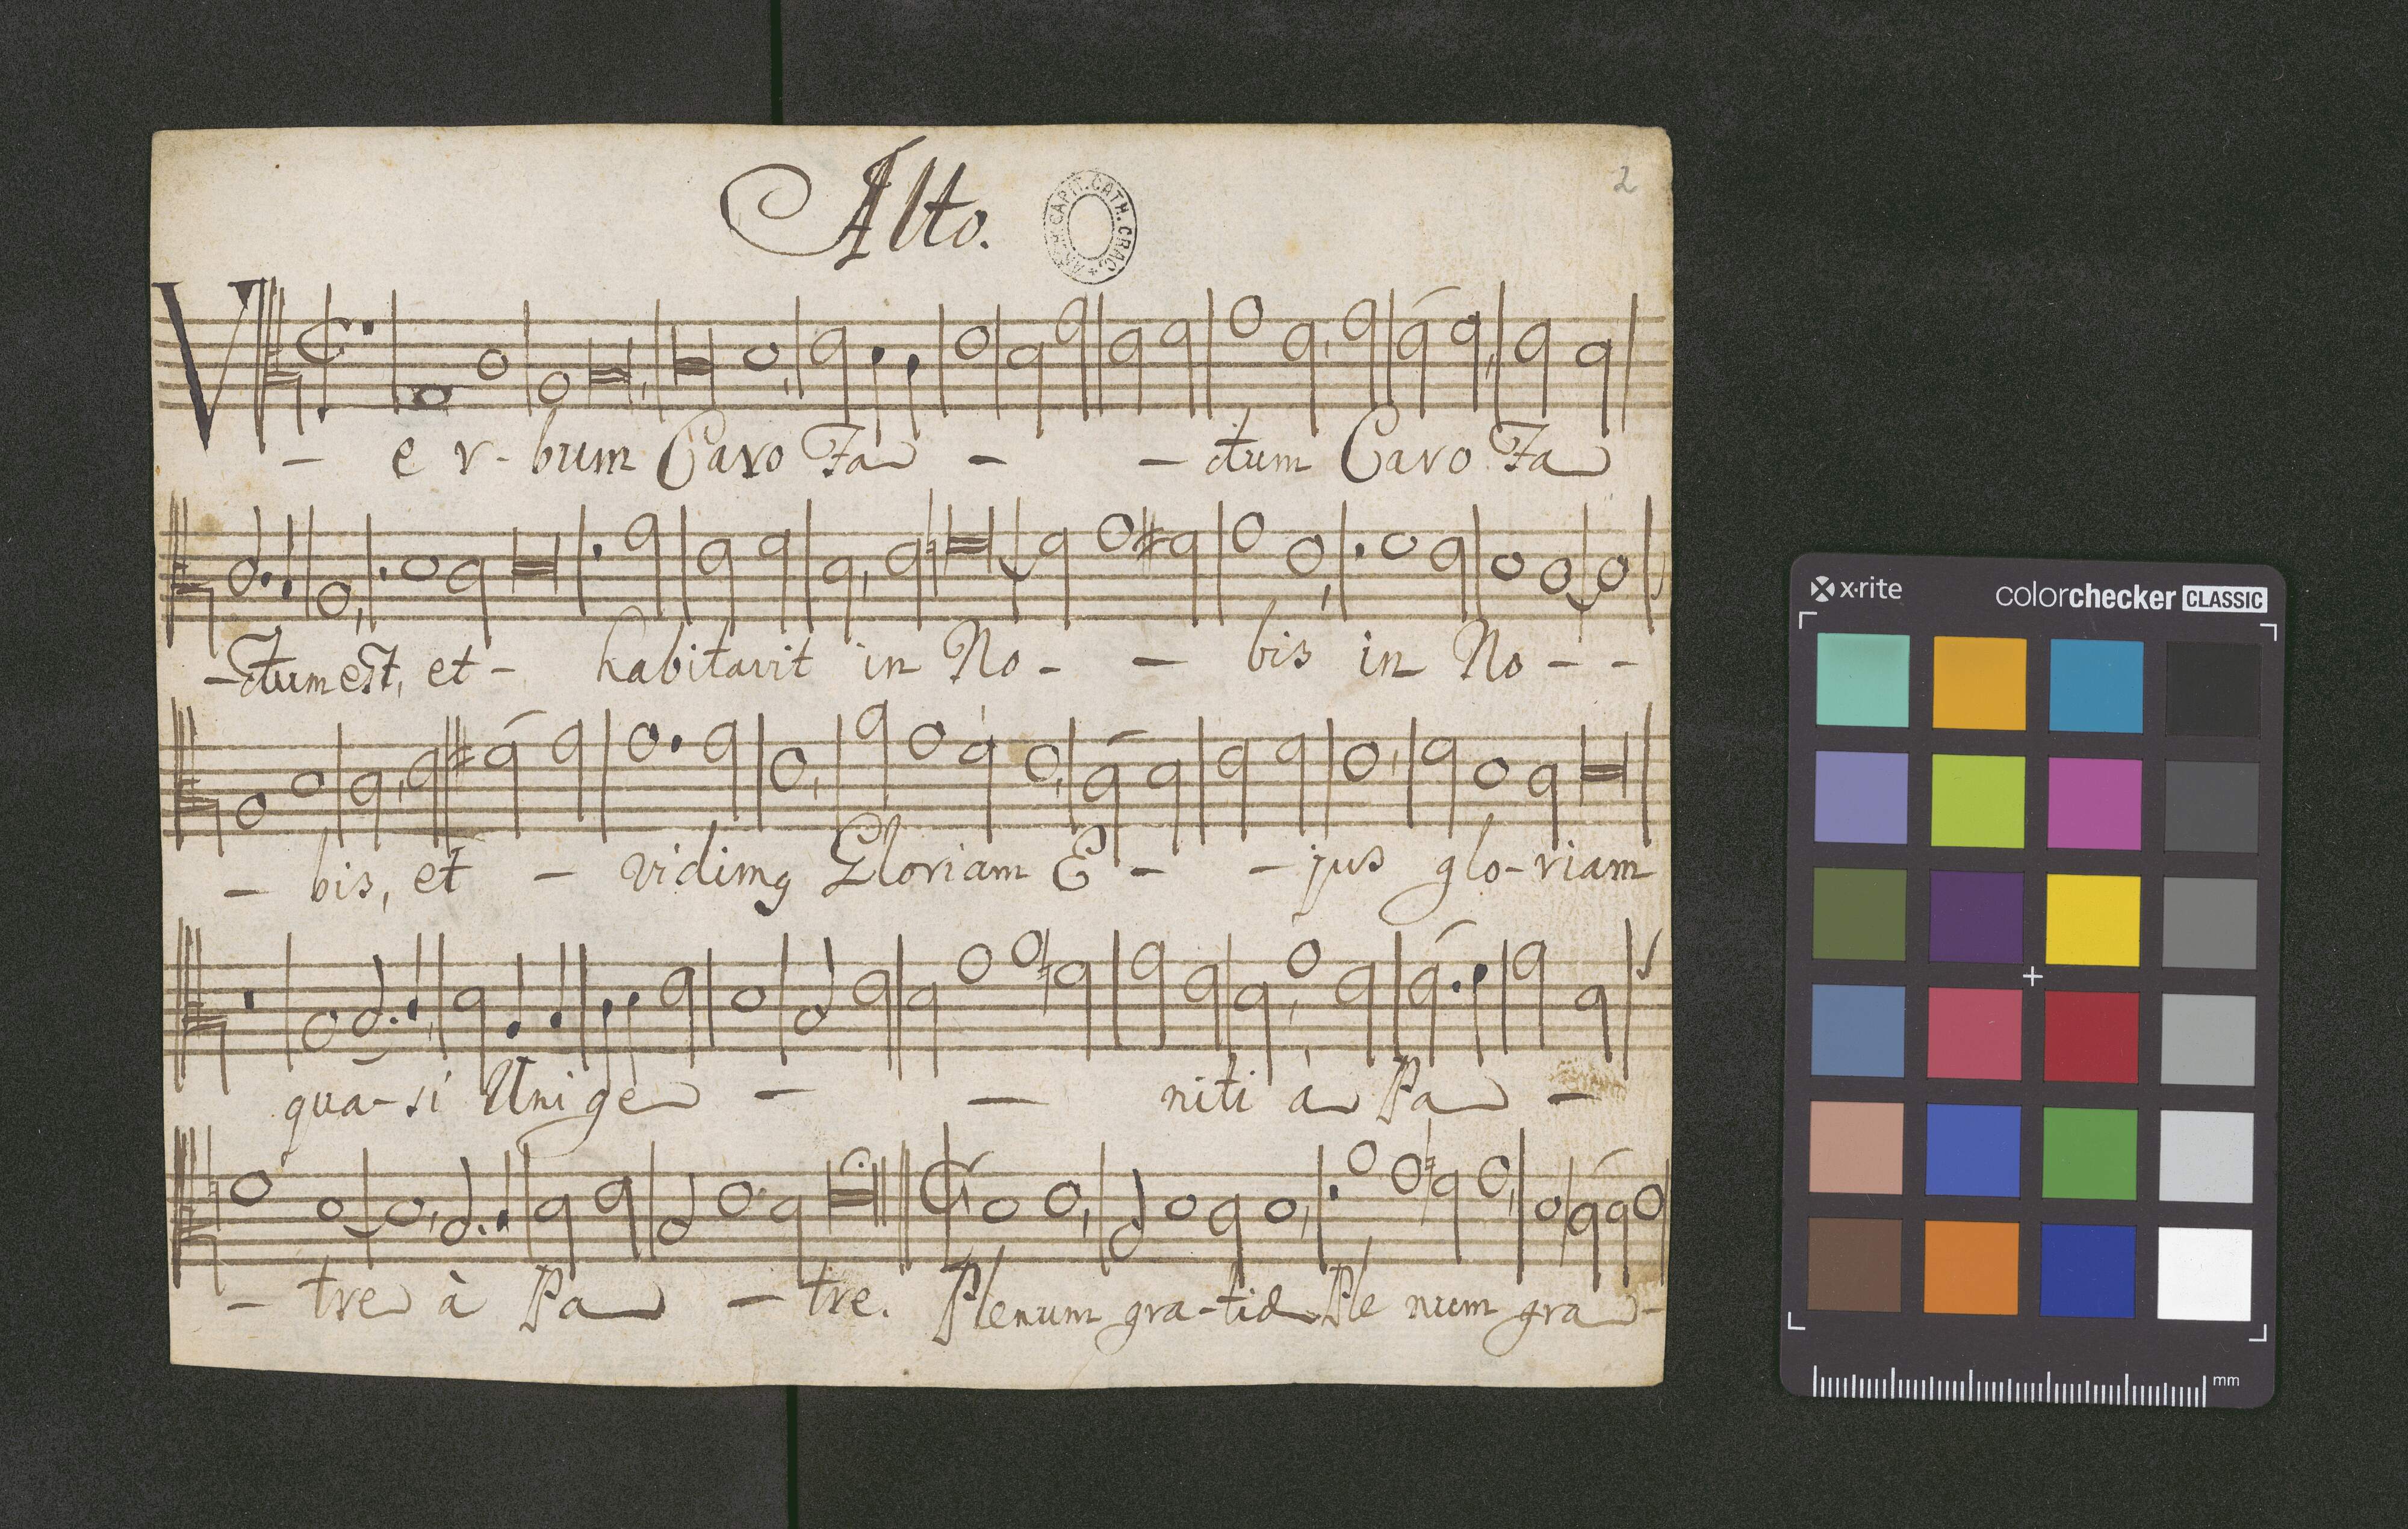 Alto.
ARCH. CAPIT. CATH. CRAC.
2
V - e r - bum Caro Fa - - ctum Caro Fa
- ctum est, et - habitavit in No - - bis in No - -
- bis, et - vidimꝰ Gloriam E - - jus glo - riam
qua - si Unige - - niti à Pa -
- tre à Pa - tre. Plenum gra - tiæ Ple num gra -
x·rite
colorchecker CLASSIC
mm